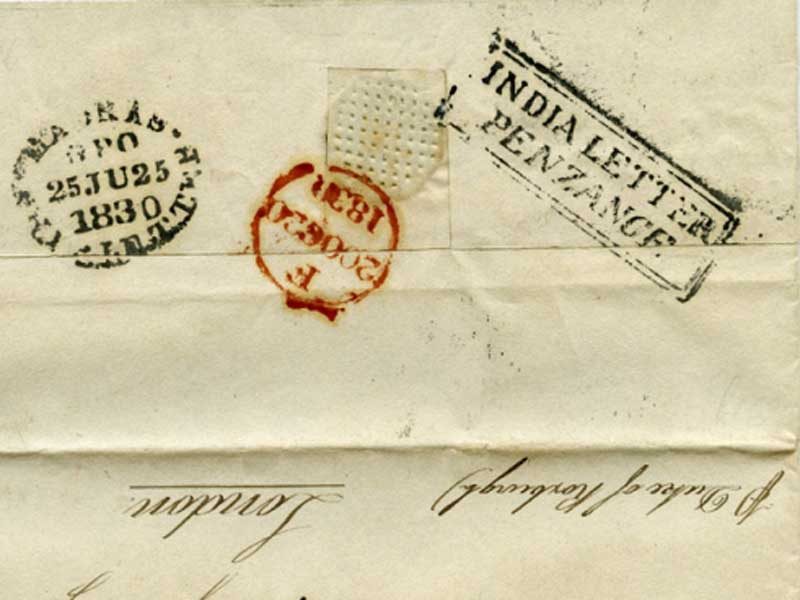 MADRAS
GPO
25 JU 25
1830
LETTER
INDIA LETTER
PENZANCE
F
20 OC 20
1830
London
p Duke of Roxburgh)